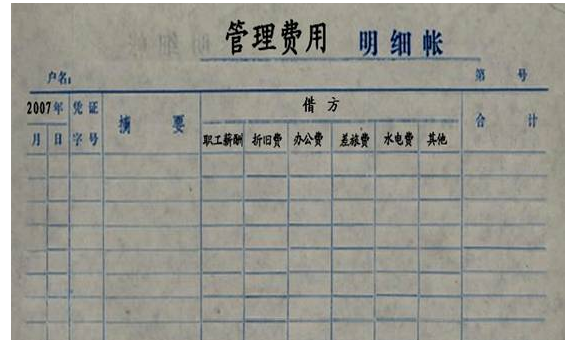 管理费用 明细帐
户名：
第 号
2007年 凭证 摘要 借方 合计
月 日 字号 职工薪酬 折旧费 办公费 差旅费 水电费 其他